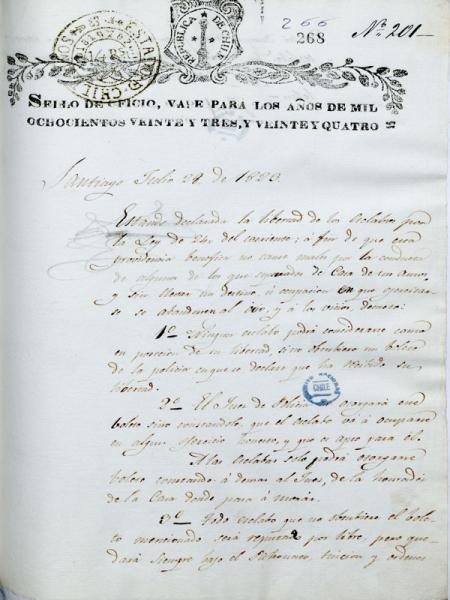 266
268
Nº 201
REPUBLICA DE CHILE
SELLO DE OFICIO, VALE PARA LOS AÑOS DE MIL
OCHOCIENTOS VEINTE Y TRES, Y VEINTE Y QUATRO
Santiago Julio 28 de 1823.
Estando declarada la libertad de los esclabos por
la Ley de 24 del corriente; á fin de que esta
providencia benefica no cause males por la conducta
de algunos de los que separados de Casa de sus amos,
y sin tener un destino, ú ocupacion en que egercitar-
se se abandonen al ocio, y á los vicios, decreto:
1º Ningun esclabo podrá considerarse como
en posesion de su libertad, sino obtubiere un boleto
de la policia en que se declare que ha recibido su
libertad.
CHILE
2º El Jues de Policia otorgará este
boleto sino constandole, que el esclabo vá á ocuparse
en algun egercicio honesto, y que es apto para el.
A las esclabas solo podrá otorgarse
boleto constando á demas al Jues, de la honradés
de la Casa donde pasa á morar.
3º Todo esclabo que no obtubiere el bole-
to mencionado será reputado por libre, pero que-
dará siempre bajo el Patronato, tuicion y ordenes